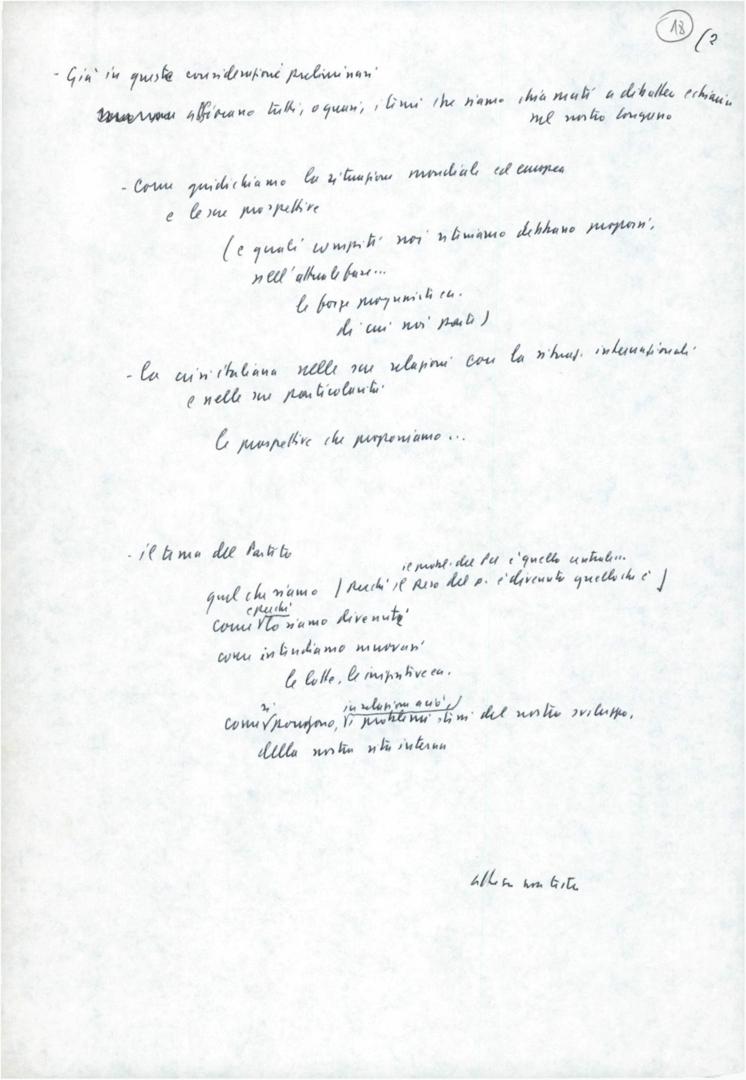 18
(2
- Già in queste considerazioni preliminari
affiorano tutti, o quasi, i temi che siamo chiamati a dibattere e chiarire
nel nostro Congresso
- Come giudichiamo la situazione mondiale ed europea
e le sue prospettive
(e quali compiti noi riteniamo debbano proporsi,
nell'attuale fase...
le forze progressiste ecc.
di cui noi parte)
- la crisi italiana nelle sue relazioni con la situaz. internazionale
e nelle sue particolarità
le prospettive che proponiamo...
- il tema del Partito
il probl. del PCI è quello centrale...
quel che siamo (perché il peso del p. è divenuto quello che è)
e perché
come lo siamo divenuti
come intendiamo muoverci
le lotte, le iniziative ecc.
si in relazione a ciò
come pongono, i problemi stessi del nostro sviluppo,
della nostra vita interna